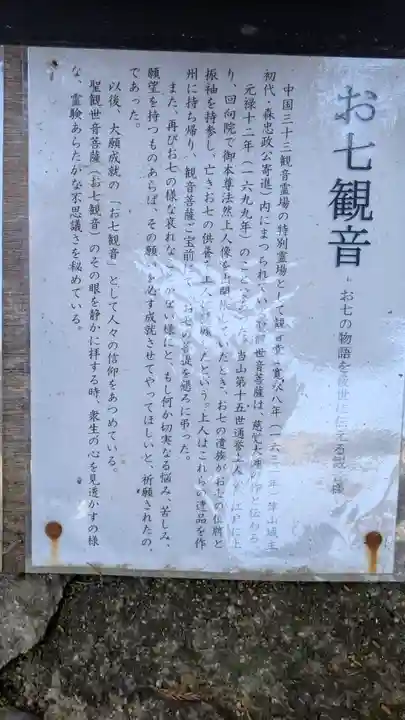 お七観音
お七の物語を
中国三十三観音霊場の特別霊場として観音堂
初代・森忠政公寄進)内にまつられてい 世音菩薩は、慈覚大師 作と伝わる
元禄十二年(一六九九年)のこと 当山第十五世通誉上人 江戸に上
り、回向院で御本尊法然上人像を出開 ていたとき、お七の遺族がお七の位牌と
振袖を持参し、亡きお七の供養を上人に たという。上人はこれらの遺品を作
州に持ち帰り、観音菩薩ご宝前に お七 菩提を懇ろに弔った。
また、再びお七の様な哀れなこ ない様にと、もし何か切実なる悩み、苦しみ、
願望を持つものあらば、その願 必ず成就させてやってほしいと、祈願されたの
であった。
以後、大願成就の「お七観音」として人々の信仰をあつめている。
聖観世音菩薩(お七観音)のその眼を静かに拝する時、衆生の心を見透かすの様
な、霊験あらたかな不思議さを秘めている。